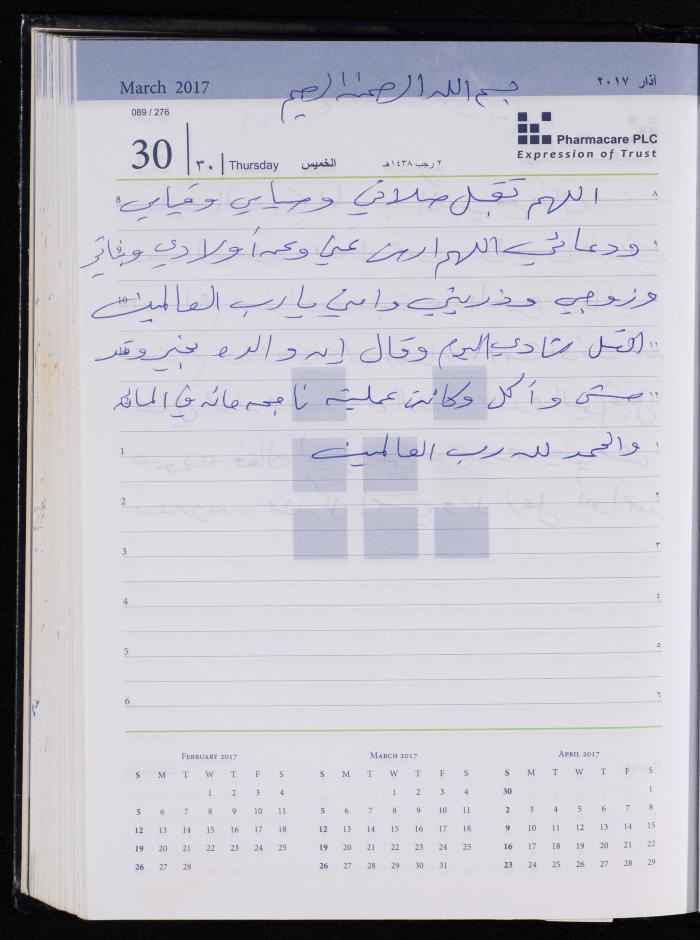 March 2017
بسم الله الرحمن الرحيم
آذار ٢٠١٧
089 / 276
30
٣٠
Thursday
الخميس
٢ رجب ١٤٣٨هـ
Pharmacare PLC
Expression of Trust
8 اللهم تقبل صلاتي وصيامي وقيامي ٨
ودعائي اللهم ارض عني وعن أولادي وبناتي ٩
10 وزوجي وذريتي وامي يا رب العالمين
اتصل شادي اليوم وقال إن والده بخير وقد ١١
مشى وأكل وكانت عمليته ناجحه مائه في المائه ١٢
1 والحمد لله رب العالمين ١
2 ٢
3 ٣
4 ٤
5 ٥
6 ٦
February 2017
S M T W T F S
1 2 3 4
5 6 7 8 9 10 11
12 13 14 15 16 17 18
19 20 21 22 23 24 25
26 27 28
March 2017
S M T W T F S
1 2 3 4
5 6 7 8 9 10 11
12 13 14 15 16 17 18
19 20 21 22 23 24 25
26 27 28 29 30 31
April 2017
S M T W T F S
30 1
2 3 4 5 6 7 8
9 10 11 12 13 14 15
16 17 18 19 20 21 22
23 24 25 26 27 28 29